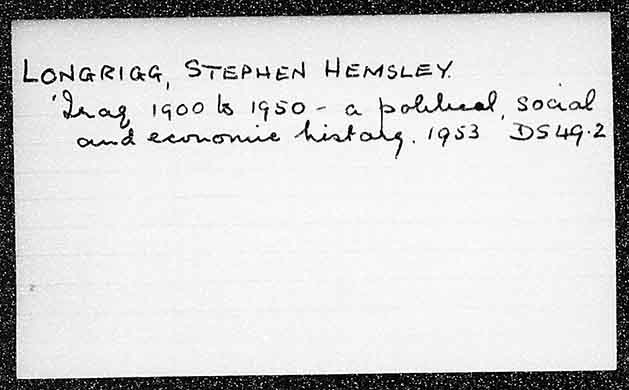 LONGRIGG, STEPHEN HEMSLEY.
'Iraq 1900 to 1950 - a political, social
and economic history. 1953 DS49.2